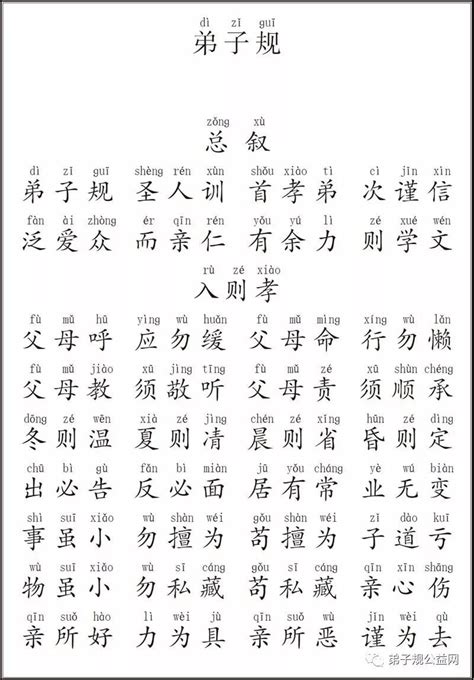 dì zǐ guī
弟子规
zǒng xù
总叙
dì zǐ guī shèng rén xùn shǒu xiào tì cì jǐn xìn
弟子规 圣人训 首孝弟 次谨信
fàn ài zhòng ér qīn rén yǒu yú lì zé xué wén
泛爱众 而亲仁 有余力 则学文
rù zé xiào
入则孝
fù mǔ hū yìng wù huǎn fù mǔ mìng xíng wù lǎn
父母呼 应勿缓 父母命 行勿懒
fù mǔ jiào xū jìng tīng fù mǔ zé xū shùn chéng
父母教 须敬听 父母责 须顺承
dōng zé wēn xià zé jìng chén zé xǐng hūn zé dìng
冬则温 夏则凊 晨则省 昏则定
chū bì gù fǎn bì miàn jū yǒu cháng yè wú biàn
出必告 反必面 居有常 业无变
shì suī xiǎo wù shàn wéi gǒu shàn wéi zǐ dào kuī
事虽小 勿擅为 苟擅为 子道亏
wù suī xiǎo wù sī cáng gǒu sī cáng qīn xīn shāng
物虽小 勿私藏 苟私藏 亲心伤
qīn suǒ hào lì wèi jù qīn suǒ wù jǐn wèi qù
亲所好 力为具 亲所恶 谨为去
弟子规公益网